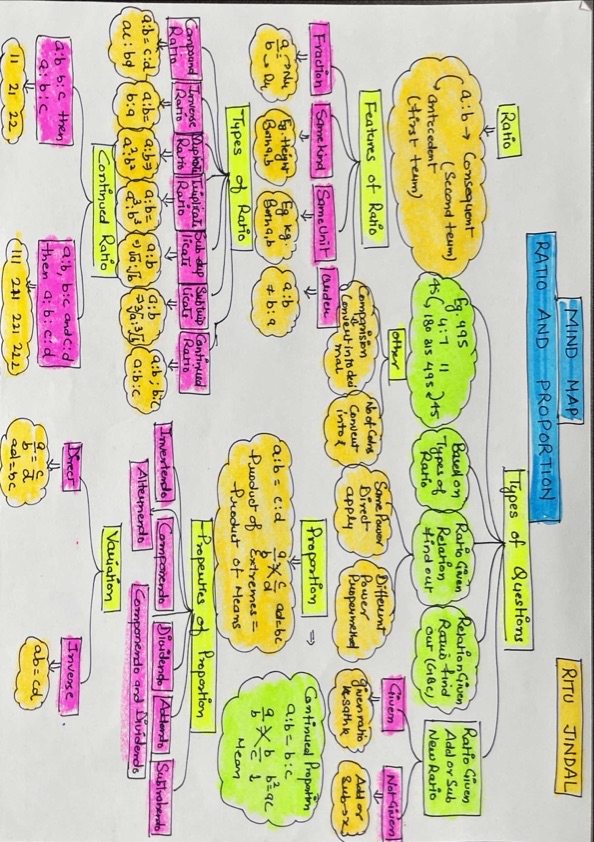 MIND MAP
RATIO AND PROPORTION
RITU JINDAL
Ratio
a:b → Consequent
(Second term)
antecedent
(first term)
Features of Ratio
Fraction
a/b → Nu
b → Du
Same kind
Eg. Height
Both a, b
Same Unit
Eg kg
Both a, b
Order
a:b
≠ b:a
Types of Ratio
Compound Ratio
a:b = c:d
ac:bd
Inverse Ratio
a:b =
b:a
Duplicate Ratio
a:b ⇒
a²:b²
Triplicate Ratio
a:b =
a³:b³
Sub dup
licate
a:b
=) √a:√b
Sub trip
licate
a:b
⇒ ³√a:³√b
Continued Ratio
a:b ; b:c
a:b:c
Continued Ratio
a:b b:c then
a:b:c
11 21 22
a:b, b:c and c:d
then a:b:c:d
111 211 221 222
Types of Questions
Eg. 495
4:7 11
45( 180 315 495 ÷ 45
Based on
Types of
Ratio
Ratio Given
Relation
find out
Relation Given
Ratio find
out
Ratio Given
Add or Sub
New Ratio
Given
given ratio
Not Given
Add or
Sub
other
Comparision
Convert into deci
mal
No of Coins
Convert
into ₹
Same Power
Direct
apply
Different
Power
Proportion
⇒
a:b = c:d a/b = c/d ad = bc
Product of Extremes =
Product of Means
Continued Proportion
a:b = b:c
a/b = b/c b² = ac
Mean
Properties of Proportion
Invertendo
Alternendo
Componendo
Dividendo
Componendo and Dividendo
Addendo
Subtrahendo
Variation
Direct
a/b = c/d
ad = bc
Inverse
ab = cd